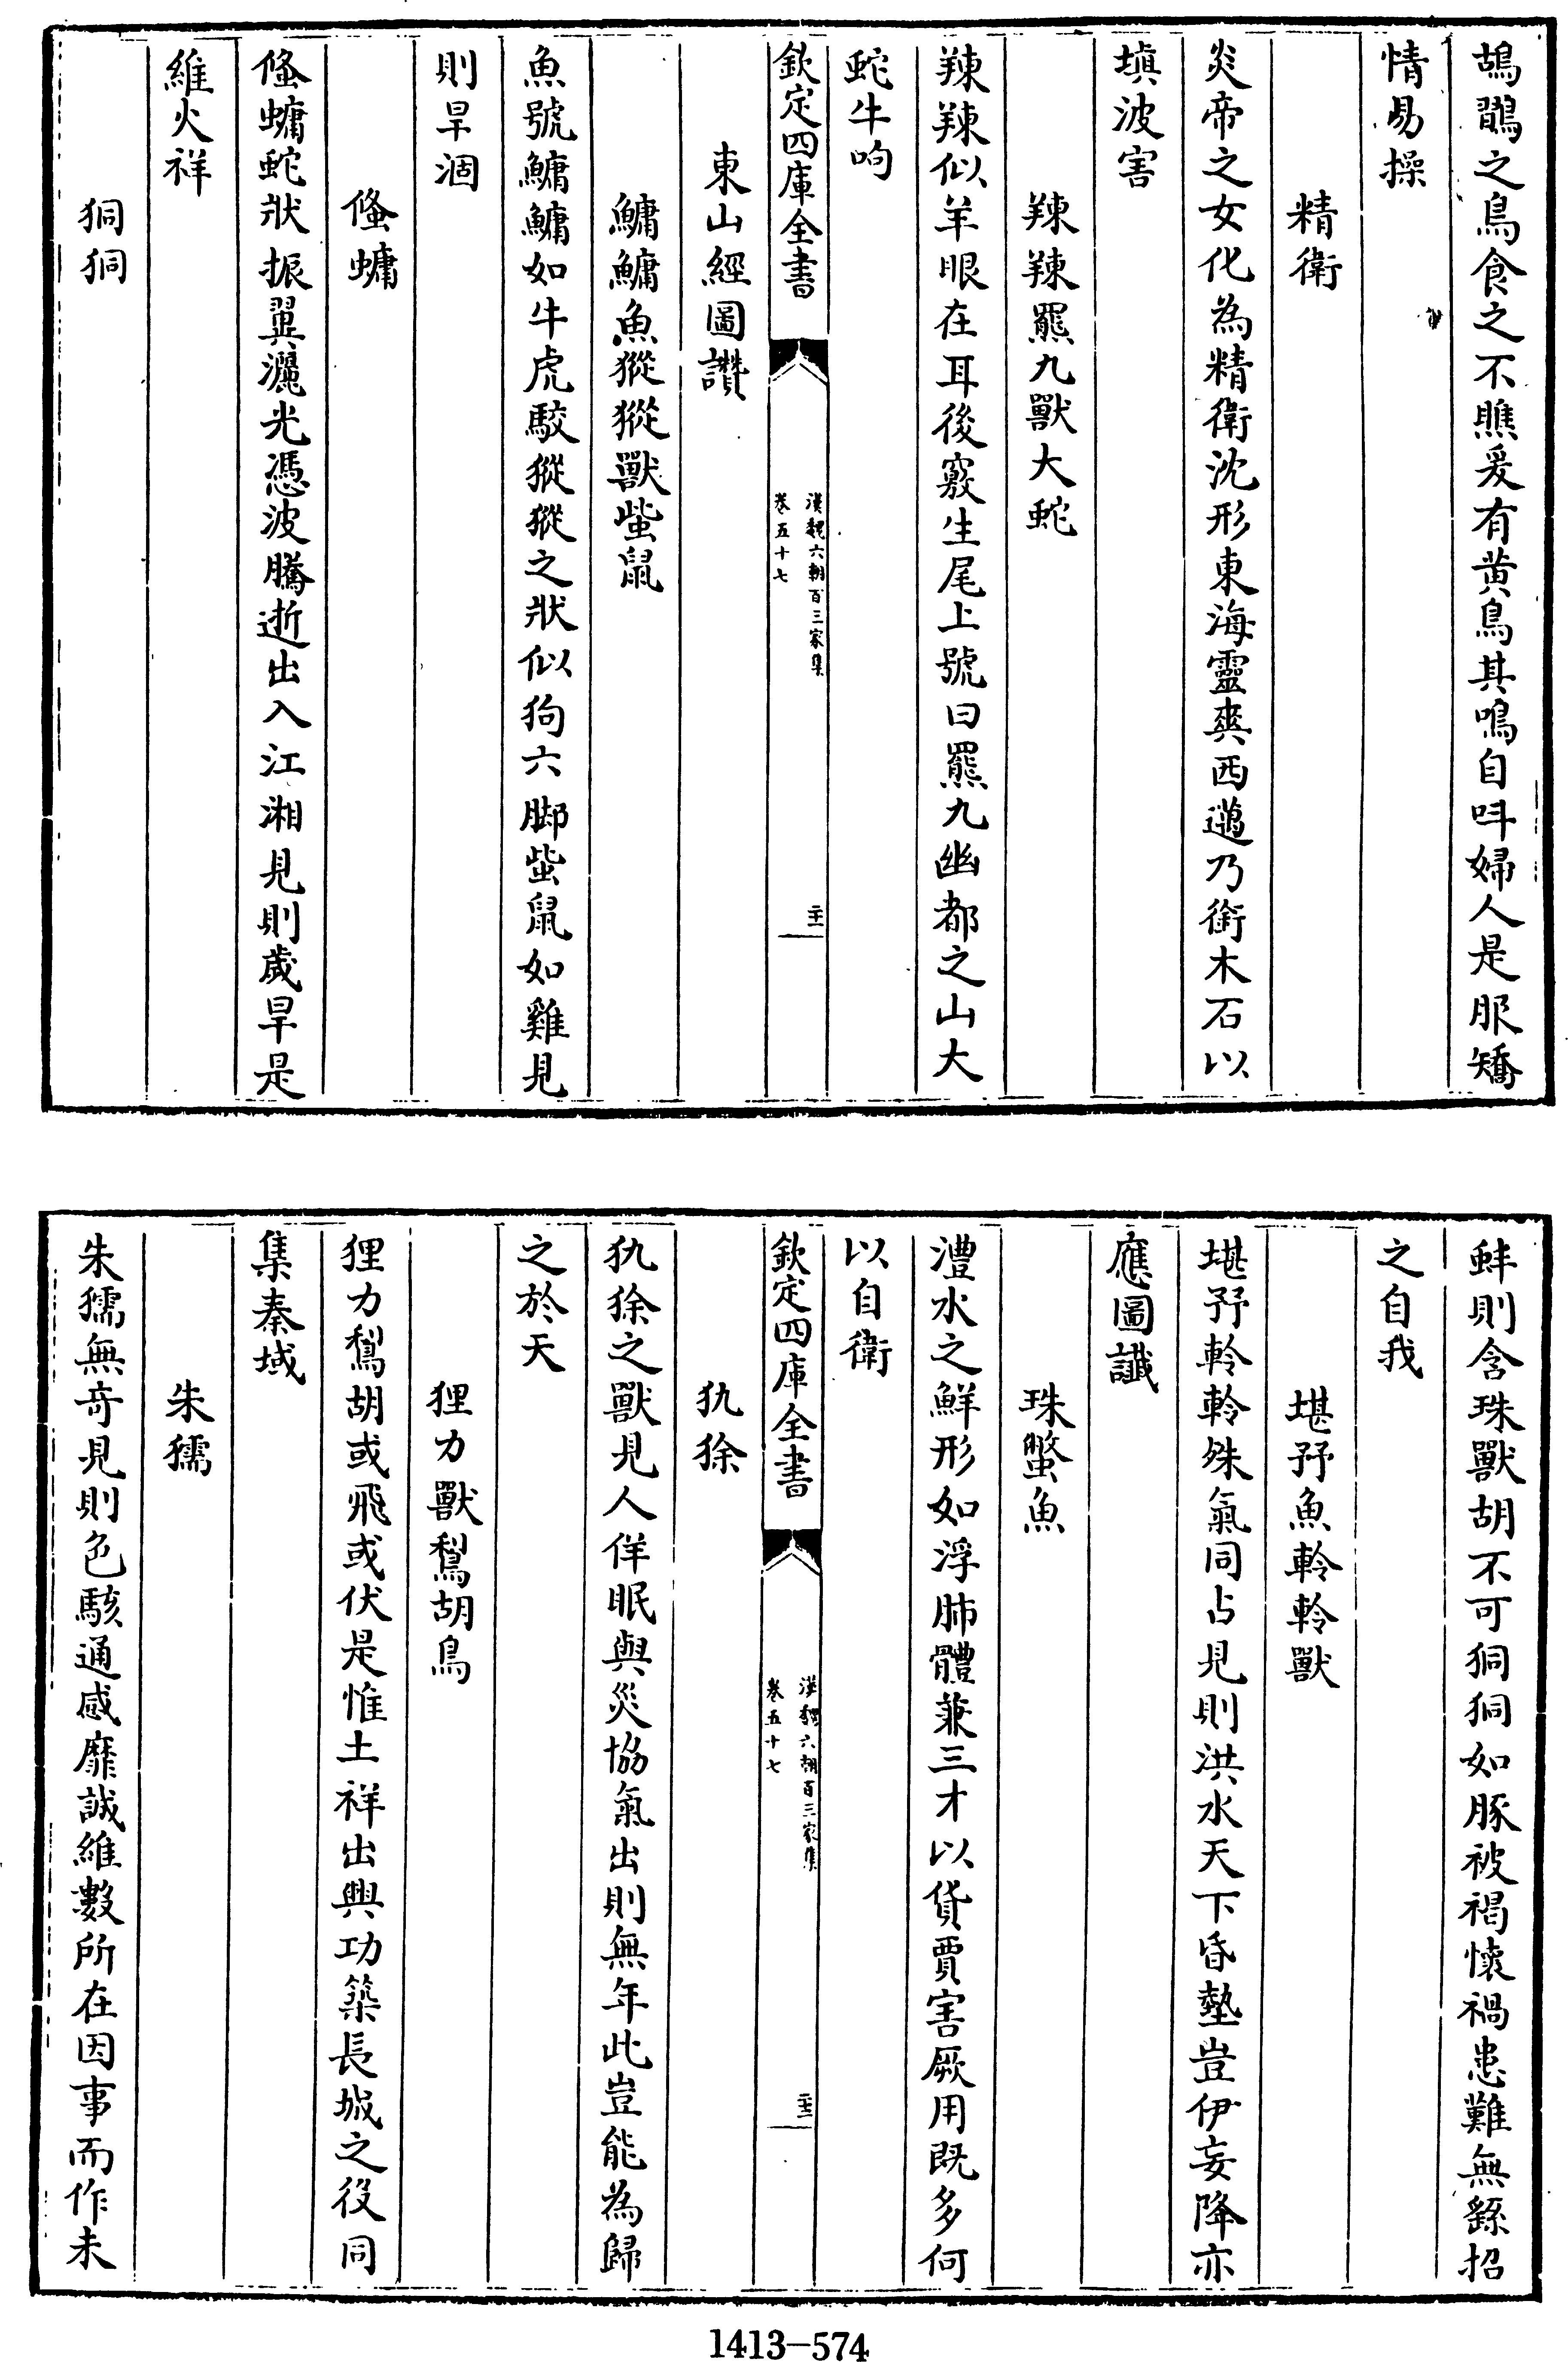 鴣鶻之鳥食之不瞧爰有黄鳥其鳴自呌婦人是服矯
情易操
精衛
炎帝之女化為精衛沈形東海靈爽西邁乃銜木石以
填波害
辣辣羆九獸大蛇
辣辣似羊眼在耳後竅生尾上號曰羆九幽都之山大
蛇牛呴
欽定四庫全書
漢魏六朝百三家集
卷五十七
二十一
東山經圖讚
鱅鱅魚猣猣獸蚩鼠
魚號鱅鱅如牛虎駮猣猣之狀似狗六脚蚩鼠如雞見
則旱涸
偹蟰
偹蟰蛇狀振翼灑光憑波騰逝出入江湘見則歲旱是
維火祥
狪狪
蚌則含珠獸胡不可狪狪如豚被褐懷禍患難無繇招
之自我
堪㐨魚軨軨獸
堪㐨軨軨殊氣同占見則洪水天下昏墊豈伊妄降亦
應圖讖
珠蟞魚
澧水之鮮形如浮肺體兼三才以貨賈害厥用既多何
以自衛
欽定四庫全書
漢魏六朝百三家集
卷五十七
二十二
犰狳
犰狳之獸見人佯眠與災協氣出則無年此豈能為歸
之於天
狸力獸鵹胡鳥
狸力鵹胡或飛或伏是惟土祥出興功築長城之役同
集秦域
朱獳
朱獳無奇見則色駭通感靡誠維數所在因事而作未
1413—574